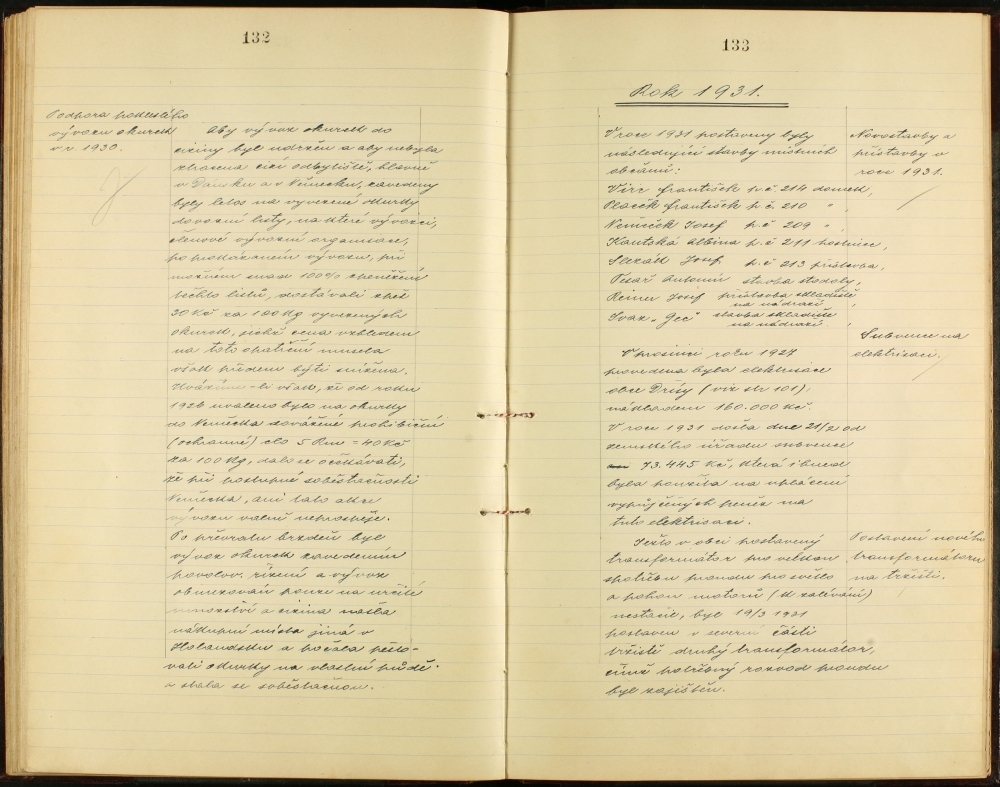 132
Podpora
vývozu okurek
v r. 1930.
Aby vývoz okurek do
ciziny byl udržen a aby nebyla
ztracena cizí odbytiště, hlavně
v Dánsku a v Německu, zavedeny
byly letos na vyvezené okurky
dovozní listy, na které vývozci,
členové vývozní organisace,
po prokázaném vývozu, při
možném snad 100% zpeněžení
těchto listů, dostávali zpět
30 Kč za 100 kg vyvezených
okurek, jichž cena vzhledem
na toto opatření musela
však předem býti snížena.
Uvážíme-li však, že od roku
1926 uvaleno bylo na okurky
do Německa dovážené prohibiční
(ochranné) clo 5 Rm = 40 Kč
za 100 kg, dalo se očekávati,
že při postupné soběstačnosti
Německa, ani tato akce
vývozu valně neprospěje.
Po převratu brzděn byl
vývoz okurek zavedením
povolov. řízení a vývoz
obmezován pouze na určité
množství a cizina našla
nákupní místa jiná v
Holandsku a počala pěsto-
vati okurky na vlastní půdě
a stala se soběstačnou.
133
Rok 1931.
V roce 1931 postaveny byly
následující stavby místních
občanů:
Novostavby a
přístavby v
roce 1931.
Virc František p.č. 214 domek,
Placék František p.č. 210 " ,
Němeček Josef p.č. 209 " ,
Kautská Albina p.č. 211 hostinec,
Slezák Josef p.č. 213 přístavba,
Tesař Antonín stavba stodoly,
Reimr Josef přístavba skladiště
na nádraží ,
Svaz „Gec" stavba skladiště
na nádraží ,
Subvence na
elektrisaci.
V prosinci roku 1927
provedena byla elektrisace
obce Držy (viz str 101),
nákladem 160.000 Kč.
V roce 1931 došla dne 21/2 od
zemského úřadu subvence
73.445 Kč, která ihned
byla použita na splácení
vypůjčených peněz na
tuto elektrisaci.
Postavení nového
transformátoru
na tržišti.
Ježto v obci postavený
transformátor pro velkou
spotřebu proudu pro světlo
a pohon motorů (k zalévání)
nestačil, byl 19/3 1931
postaven v severní části
tržiště druhý transformátor,
čímž potřebný rozvod proudu
byl zajištěn.